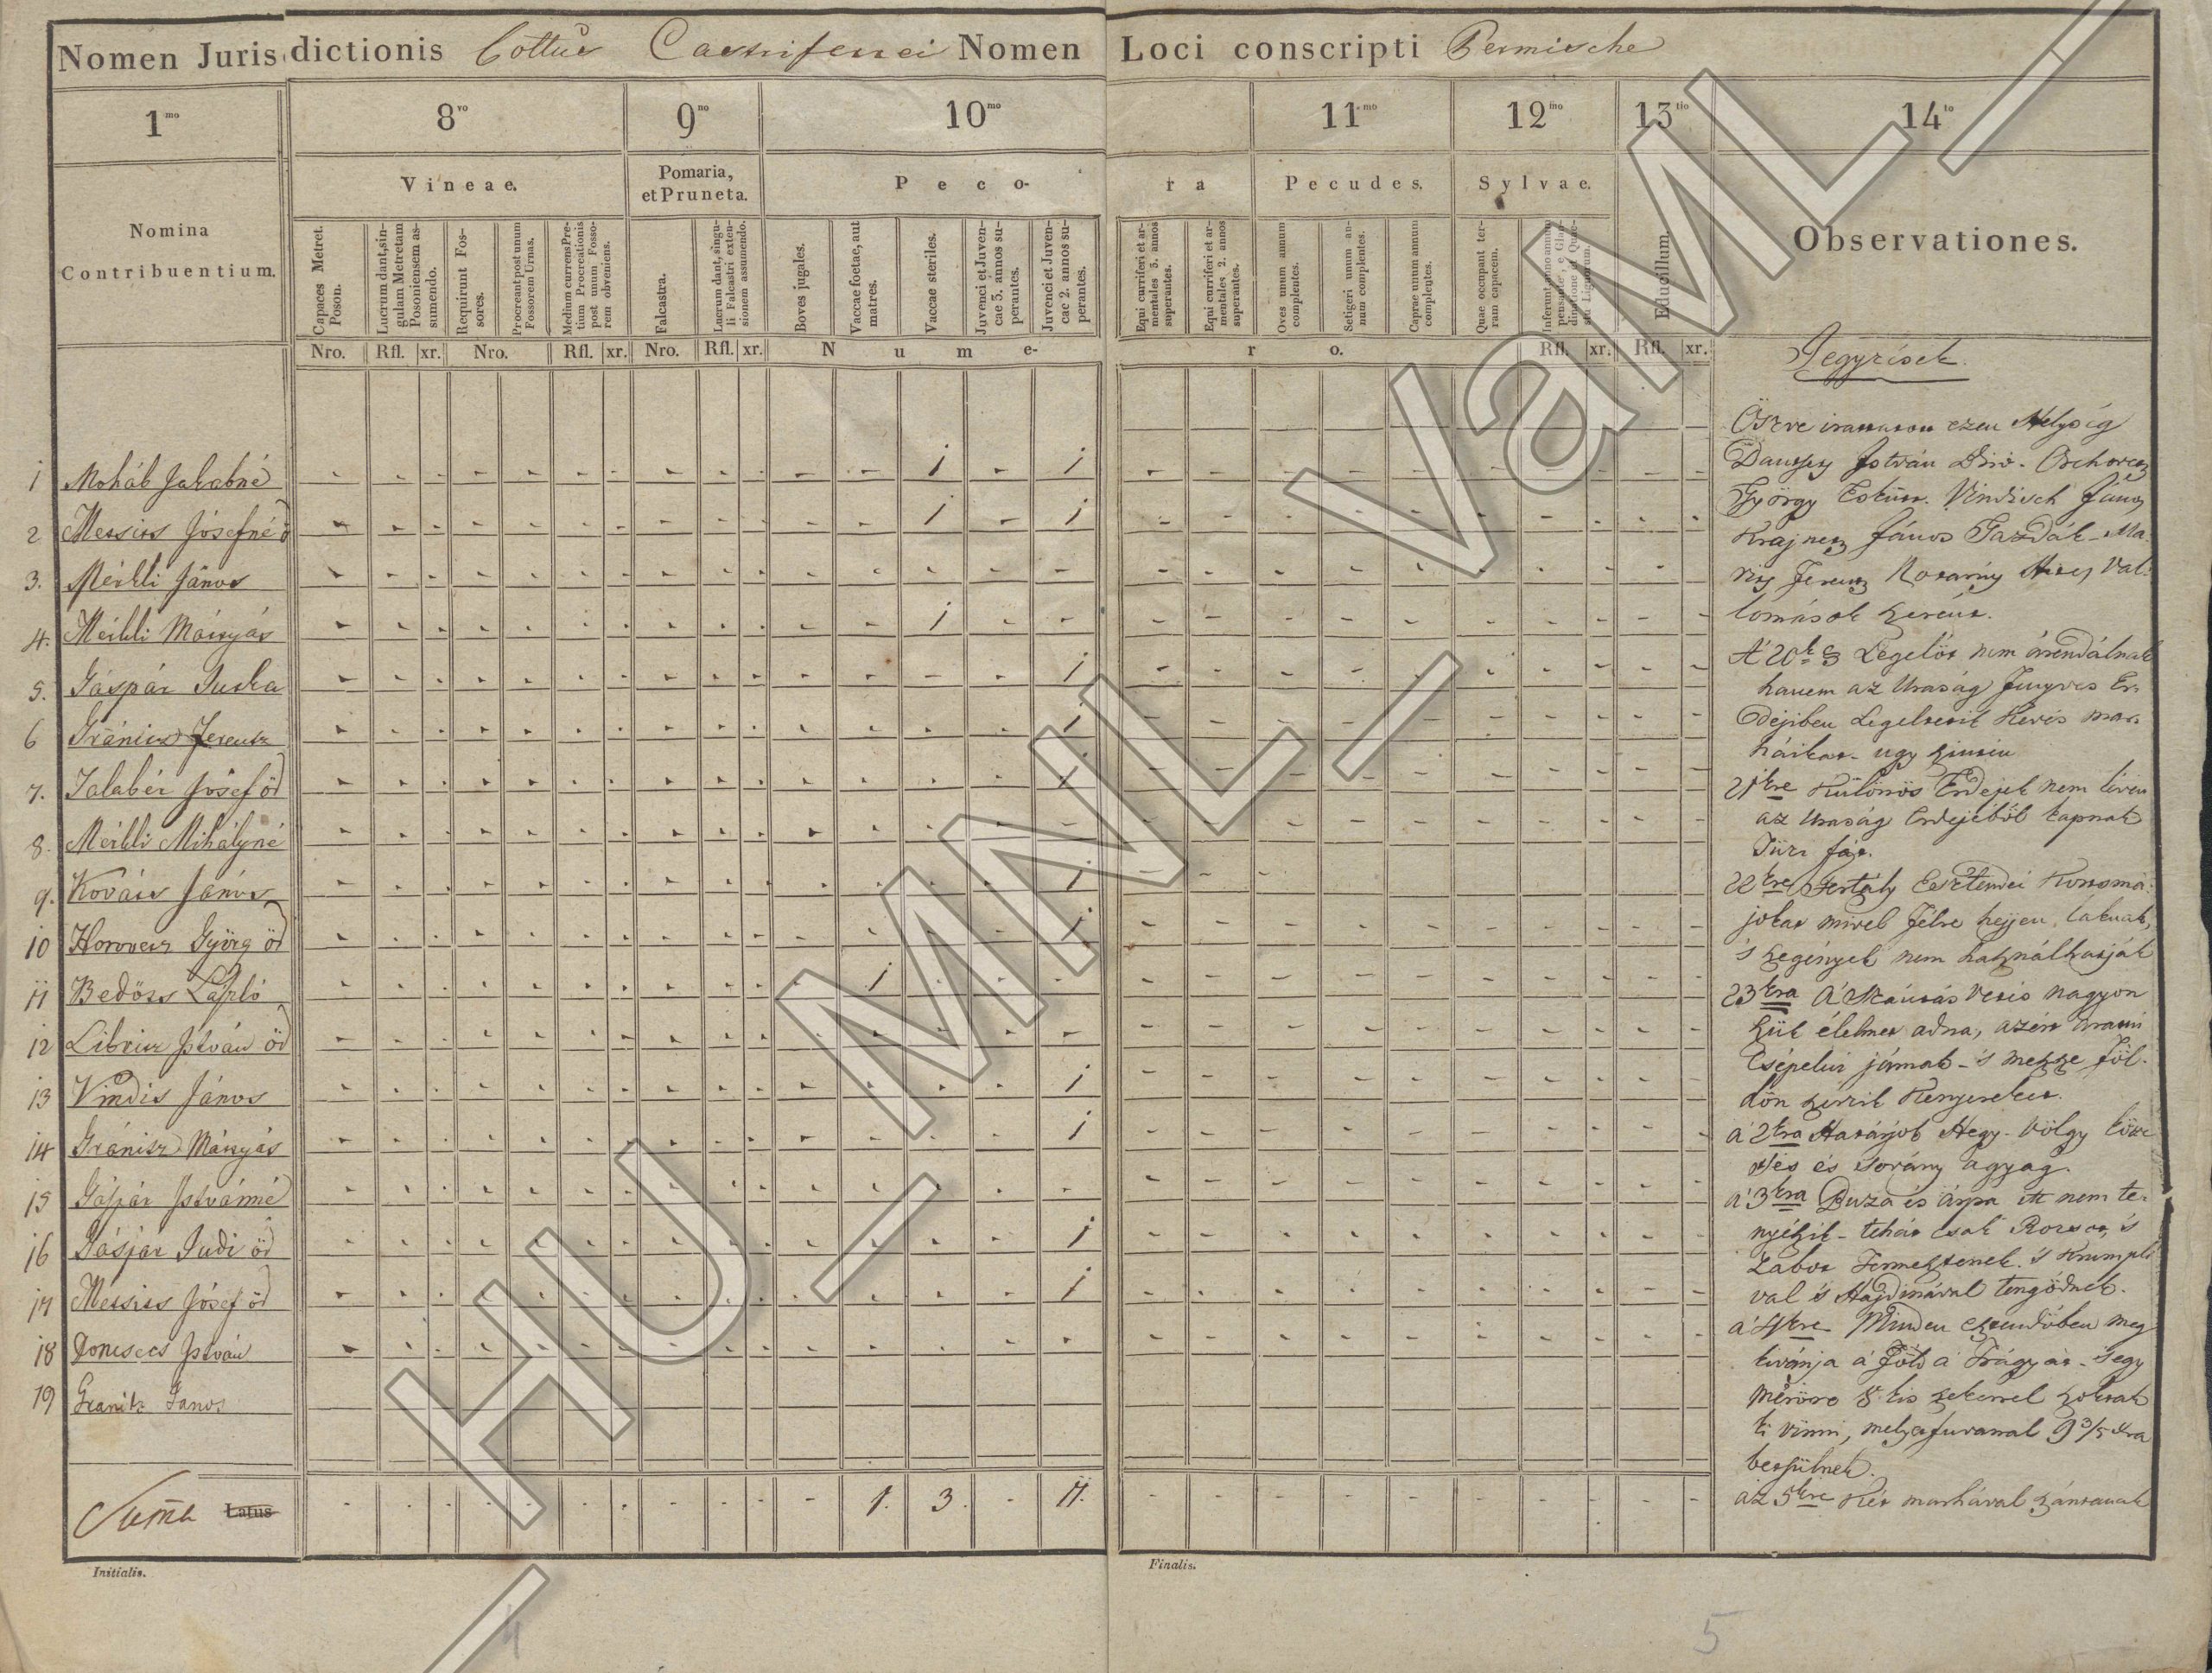 Nomen Jurisdictionis Cottus Castriferrei Nomen Loci conscripti Permische
1mo 8vo 9no 10mo 11mo 12mo 13tio 14to
Nomina Contribuentium.
Vineae.
Pomaria, et Pruneta.
Peco-
ra
Pecudes.
Sylvae.
Educillum.
Observationes.
Capaces Metret. Poson.
Lucrum dant, singulam Metretam Posoniensem assumendo.
Requirunt Fossores.
Procreant post unum Fossorem Urnas.
Medium currens Pretium Procreationis post unum Fossorem obveniens.
Falcastra.
Lucrum dant, singuli Falcastri extensionem assumendo.
Boves jugales.
Vaccae foetae, aut matres.
Vaccae steriles.
Juvenci et Juvencae 3. annos superantes.
Juvenci et Juvencae 2. annos superantes.
Equi curriferi et armentales 3. annos superantes.
Equi curriferi et armentales 2. annos superantes.
Oves unum annum complentes.
Setigeri unum annum complentes.
Caprae unum annum complentes.
Quae occupant terram capacem.
Nro. Rfl. xr. Nro. Rfl. xr. Nro. Rfl. xr. Nume-
ro. Rfl. xr. Rfl. xr.
1 Moháb Jakabné - - - - - - - - - - - - - 1 - 1
2 Messiss Jósefné ö - - - 1 - 1
3. Meikli János
4. Meikli Mátyás 1 - -
5. Gáspár Juska 1
6 Gránicz Ferentz 1
7. Talabér Jósef öd 1
8. Meikli Mihályné
9. Kováts János 1
10 Horvecz Györg öd 1
11 Bedöss László 1
12 Libricz István öd
13 Vindis János 1
14 Gránisz Mátyás 1
15 Gáspár Istvánné
16 Gáspár Judi öd 1
17 Messiss Jósef öd 1
18 Donisecs István
19 Granitz Janos
Suma Latus 1. 3. - 11.
Jegyzések.
Öszve irattatott ezen Helység
István Biró.
György Eskütt. Vindisch János
Krajnecz János Gazdák - Ma-
Ferencz
lomások szerént.
A' 20k § Legelőt nem árendálnak
hanem az Uraság Fenyves Er-
dejiben Legeltetik Kevés mar-
háikat - ugy szintén
21kre Különös Erdejek nem lévén
az Uraság Erdejéböl kapnak
Tüzi fát.
22kre Fertály Esztendei Korcsmá-
jokat mivel félre hejjen laknak,
's szegények nem használhatják
23kra A' Szántás Vetés nagyon
szük élelmet adna, azért aratni
Csépelni járnak - 's messze föl-
dön szerzik Kenyereket.
a' 2kra Határjok Hegy - völgy
és és sovány agyag.
a' 3kra Buza és árpa itt nem te-
nyészik - tehát csak Rozsot, 's
Zabot Termesztenek. 's Krumpli
val 's Hajdinával tengödnek.
a' 4kre Minden esztendőben meg
kivánja a' Föld a' Trágyát - 's egy
mérőre 8 kis szekerrel szoktak
ki vinni, 9 3/5 xra
az 5kre Két marhával szántanak
Initialis.
Finalis.
4
5
HU_MNL_VaML_I